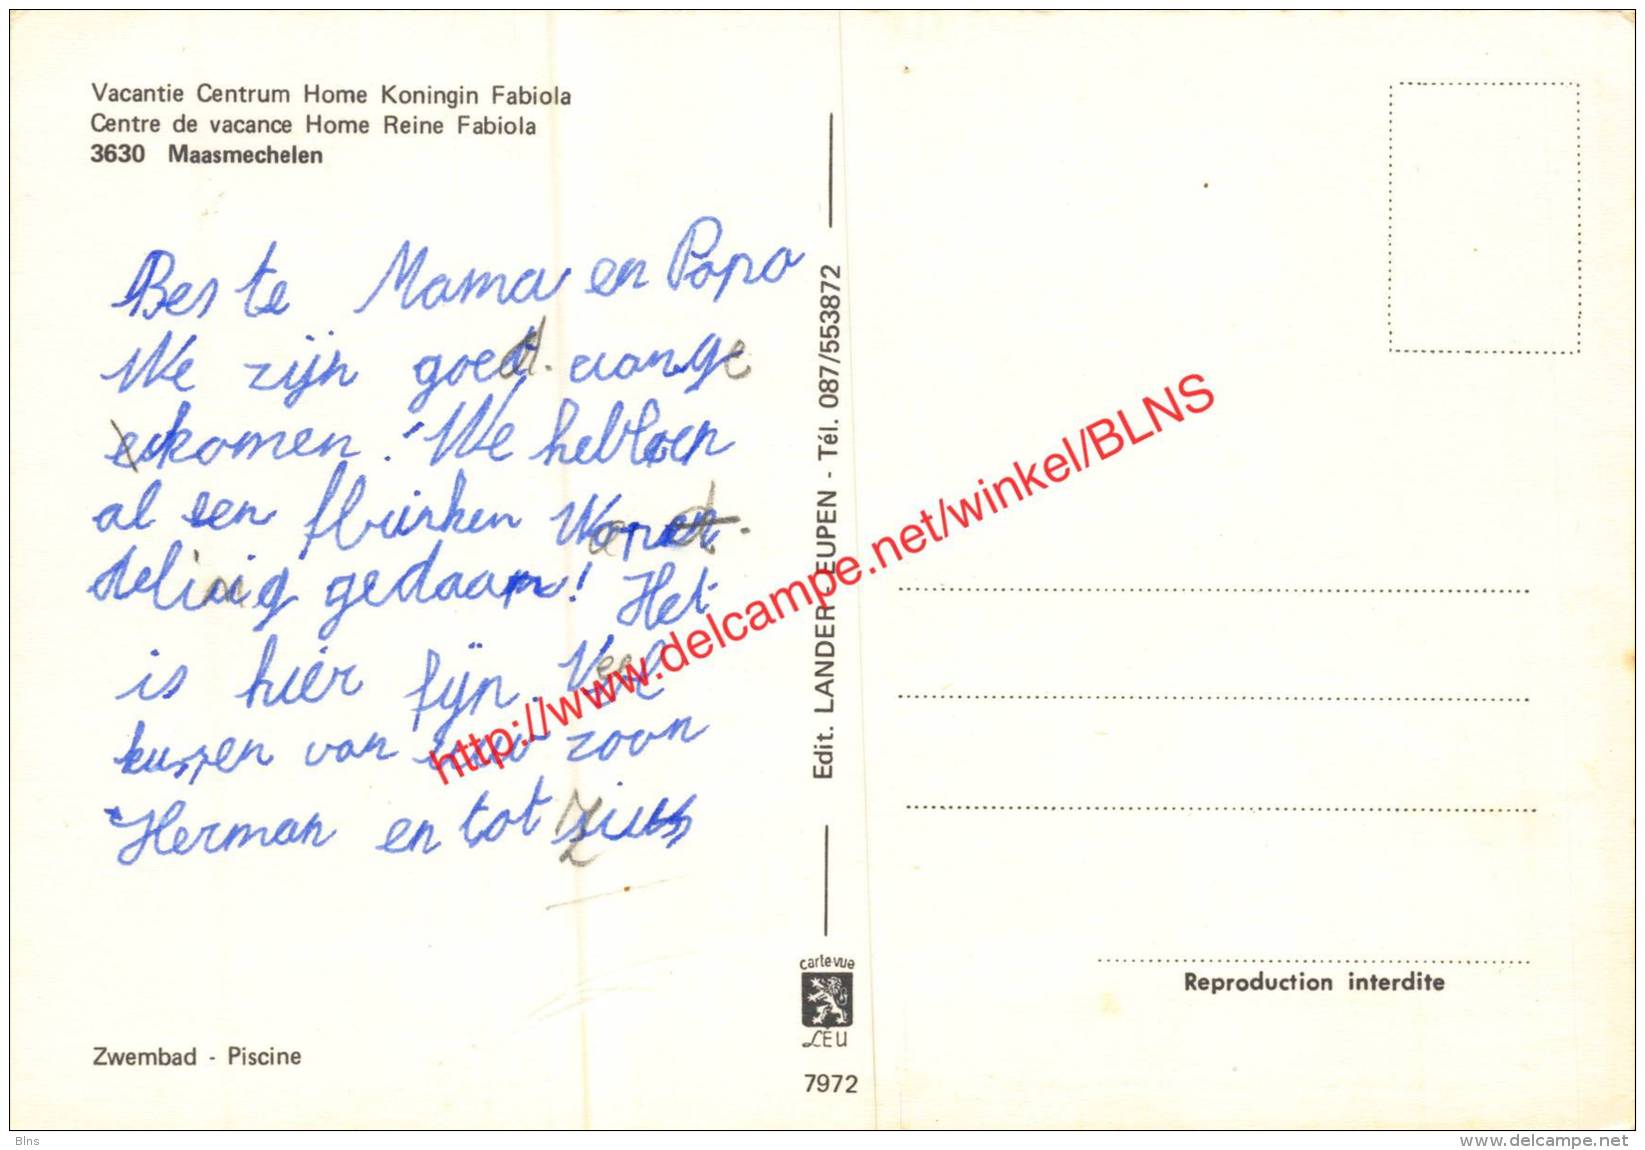 Vacantie Centrum Home Koningin Fabiola
Centre de vacance Home Reine Fabiola
3630 Maasmechelen
Beste Mama en Papa
We zijn goed aange
komen! We hebben
al een flinken Wan
deling gedaan! Het
is hier fijn. Veel
kussen van uw zoon
Herman en tot ziens
Zwembad - Piscine
Edit. LANDER - EUPEN - Tél. 087/553872
carte vue
LEU
7972
Reproduction interdite
http://www.delcampe.net/winkel/BLNS
Blns
www.delcampe.net